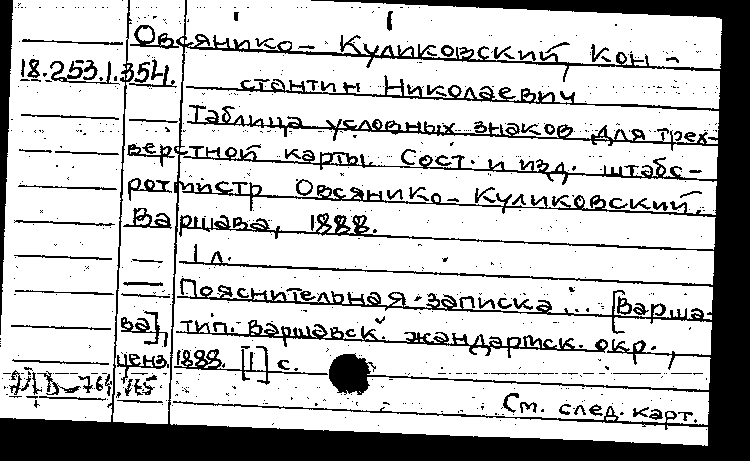 Овсянико-Куликовский, Кон-
18.253.1.354. стантин Николаевич
Таблица условных знаков для трех-
верстной карты. Сост. и изд. штабс-
ротмистр Овсянико-Куликовский.
Варшава, 1888.
1 л.
— Пояснительная записка... [Варша-
ва], тип. Варшавск. жандармск. окр.,
ценз. 1888. [1] с.
См. след. карт.